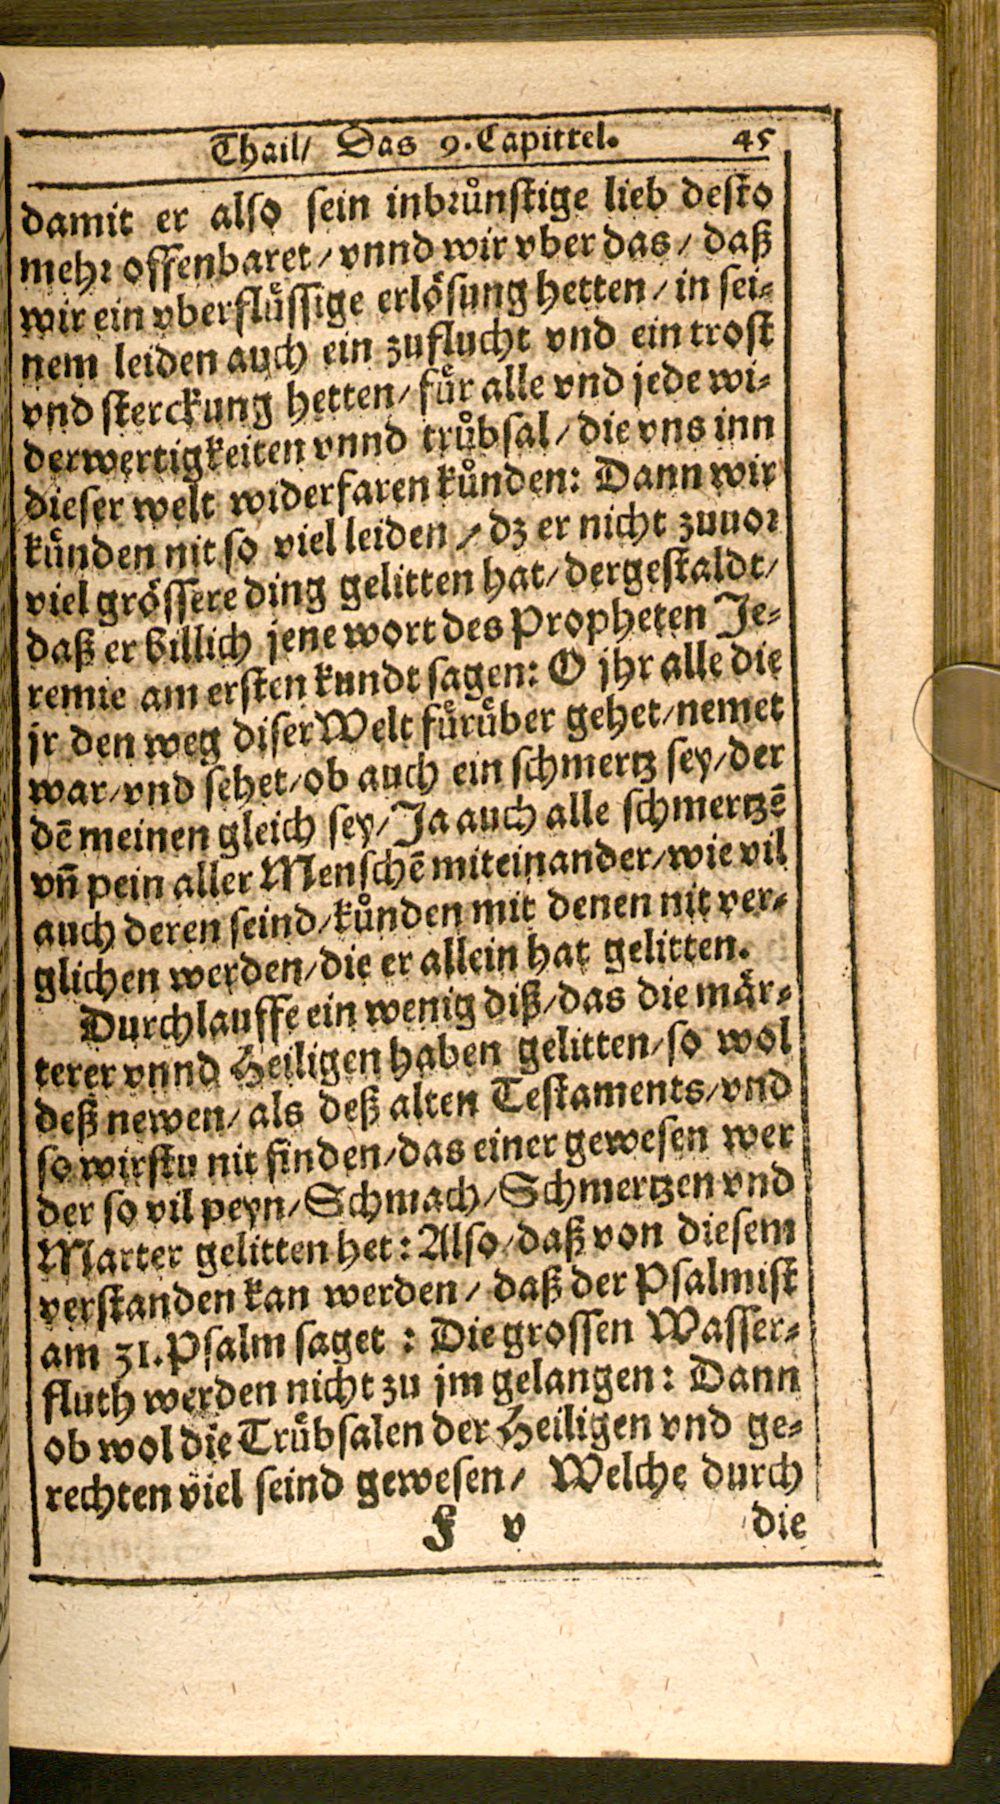 Thail/ Das 9. Capittel. 45
damit er also sein inbrůnstige lieb desto
mehr offenbaret/ vnnd wir vber das/ daß
wir ein vberflůssige erlösung hetten/ in sei-
nem leiden auch ein zuflucht vnd ein trost
vnd sterckung hetten/ fůr alle vnd jede wi-
derwertigkeiten vnnd trůbsal/ die vns inn
dieser welt widerfaren kůnden: Dann wir
kůnden nit so viel leiden/ dz er nicht zuuor
viel grössere ding gelitten hat/ dergestaldt/
daß er billich jene wort des Propheten Je-
remie am ersten kundt sagen: O jhr alle die
jr den weg diser Welt fůrůber gehet/ nemet
war/ vnd sehet/ ob auch ein schmertz sey/ der
dē meinen gleich sey/ Ja auch alle schmertzē
vñ pein aller Menschē miteinander/ wie vil
auch deren seind/ kůnden mit denen nit ver-
glichen werden/ die er allein hat gelitten.
Durchlauffe ein wenig diß/ das die mär-
terer vnnd Heiligen haben gelitten/ so wol
deß newen/ als deß alten Testaments/ vnd
so wirstu nit finden/ das einer gewesen wer
der so vil peyn/ Schmach/ Schmertzen vnd
Marter gelitten het: Also/ daß von diesem
verstanden kan werden/ daß der Psalmist
am 31. Psalm saget: Die grossen Wasser-
fluth werden nicht zu jm gelangen: Dann
ob wol die Trůbsalen der Heiligen vnd ge-
rechten viel seind gewesen/ Welche durch
F v die